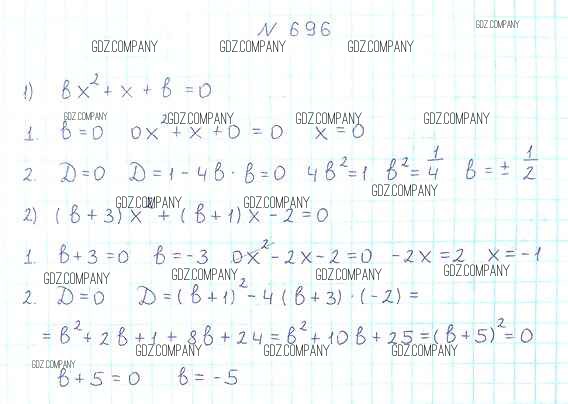 N 696
GDZ.COMPANY
GDZ.COMPANY GDZ.COMPANY GDZ.COMPANY
1) вx² + x + в = 0
GDZ.COMPANY GDZ.COMPANY GDZ.COMPANY GDZ.COMPANY
1. в = 0 0x² + x + 0 = 0 x = 0
2. D = 0 D = 1 - 4в · в = 0 4в² = 1 в² = 1/4 в = ± 1/2
GDZ.COMPANY
GDZ.COMPANY GDZ.COMPANY
2) (в + 3)x² + (в + 1)x - 2 = 0
1. в + 3 = 0 в = -3 0x² - 2x - 2 = 0 -2x = 2 x = -1
GDZ.COMPANY GDZ.COMPANY GDZ.COMPANY GDZ.COMPANY
2. D = 0 D = (в + 1)² - 4(в + 3) · (-2) =
= в² + 2в + 1 + 8в + 24 = в² + 10в + 25 = (в + 5)² = 0
GDZ.COMPANY GDZ.COMPANY GDZ.COMPANY
GDZ.COMPANY
в + 5 = 0 в = -5